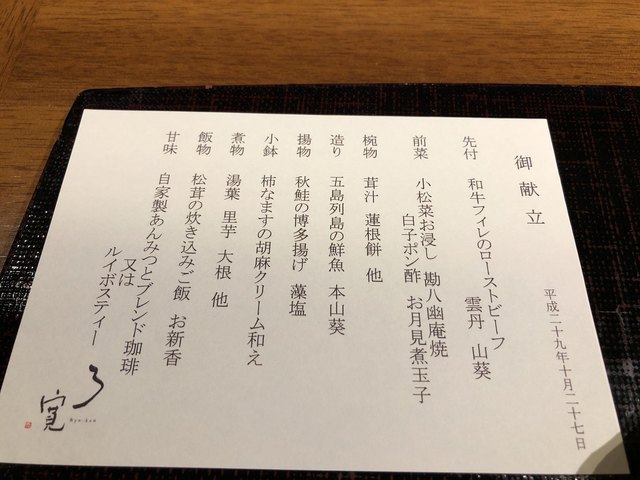 御献立
平成二十九年十月二十七日
先付　和牛フィレのローストビーフ
雲丹　山葵
前菜　小松菜お浸し　勘八幽庵焼
白子ポン酢　お月見煮玉子
椀物　茸汁　蓮根餅　他
造り　五島列島の鮮魚　本山葵
揚物　秋鮭の博多揚げ　藻塩
小鉢　柿なますの胡麻クリーム和え
煮物　湯葉　里芋　大根　他
飯物　松茸の炊き込みご飯　お新香
甘味　自家製あんみつとブレンド珈琲
又は
ルイボスティー
了寛
Ryo-kan